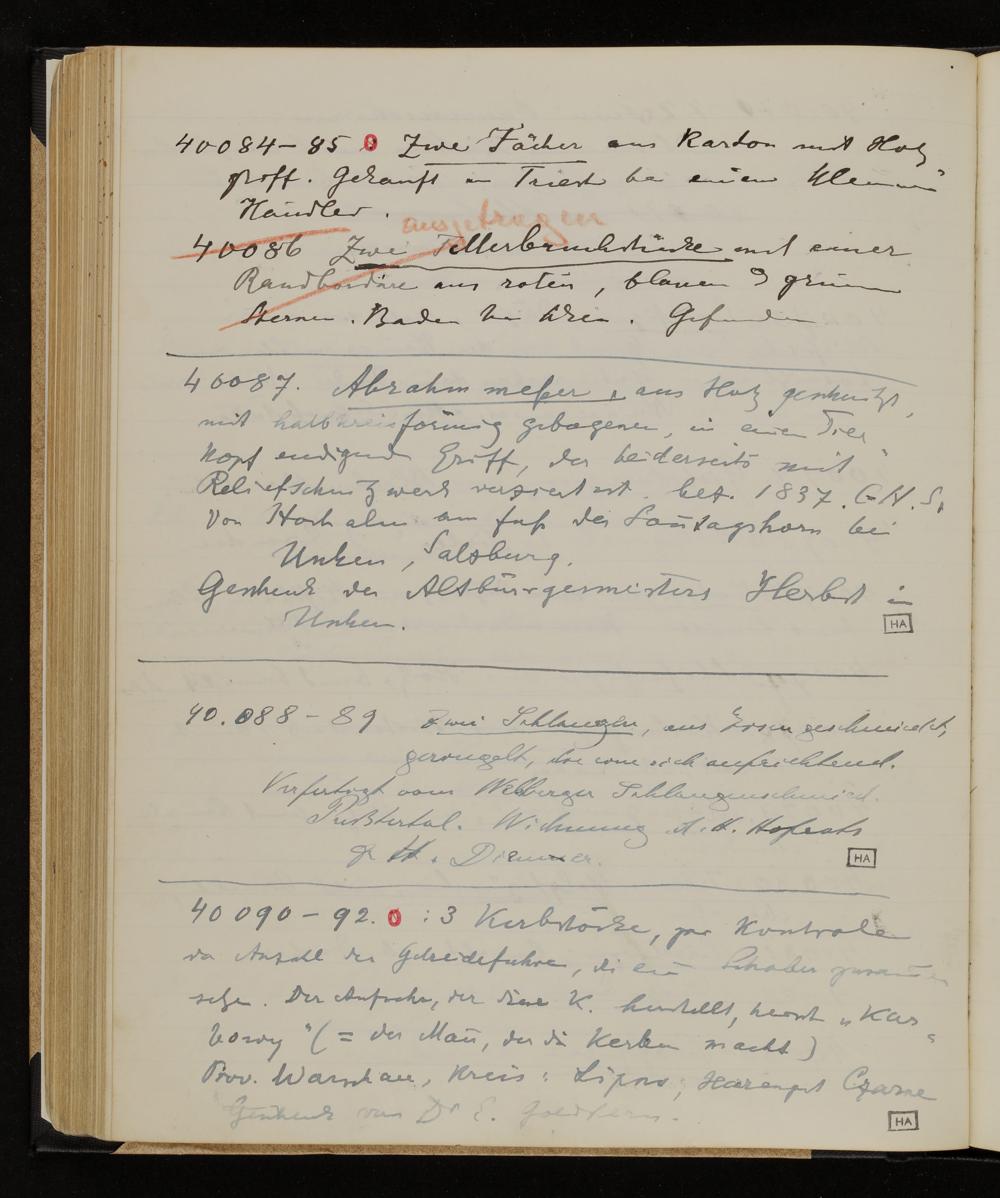 40084-85 0 Zwei Fächer aus Karton mit Holz
griff. Gekauft in Triest bei einem kleinen
Händler.
ausgetragen
40086 Zwei Tellerbruchstücke mit einer
Randbordüre aus roten, blauen & grünen
Sternen. Baden bei Wien. Gefunden
40087. Abrahmmeßer, aus Holz geschnitzt,
mit halbkreisförmig gebogenen, in einen Tier
kopf endigenden Griff, der beiderseits mit
Reliefschnitzwerk verziert ist. bez. 1837. G.N.S.
Von Hochalm am Fuß des Sonntagshorn bei
Unken, Salzburg.
Geschenk des Altbürgermeisters Herbst in
Unken.
HA
40.088-89 Zwei Schlangen, aus Eisen geschmiedet,
geringelt, die eine sich aufrichtend.
Verfertigt vom Welsberger Schlangenschmied.
Pustertal. Widmung d. H. Hofrats
Dr
HA
40090-92. 0 : 3 Kerbstöcke, zur Kontrolle
der Anzahl der Getreidefuhren, die ein Schober
Der Aufseher, der diese K. herstellt, heisst „Kar
bowy" (= der Mann, der die Kerben macht)
Prov. Warschau, Kreis: Lipno, Czarne
Geschenk von Dr E. Goldstern.
HA